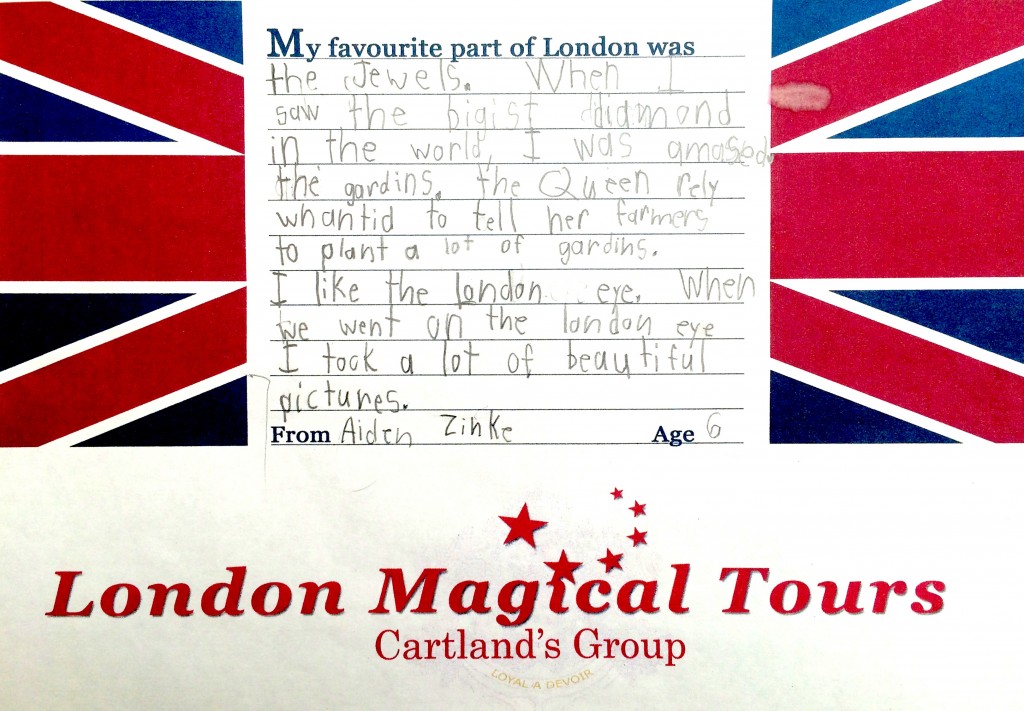 My favourite part of London was
the Jewels. When I
saw the bigist ddiamond
in the world, I was amased.
the gardins. the Queen rely
whantid to tell her farmers
to plant a lot of gardins.
I like the London eye. When
we went on the london eye
I took a lot of beautiful
pictures.
From Aiden Zinke Age 6
London Magical Tours
Cartland's Group
LOYAL A DEVOIR